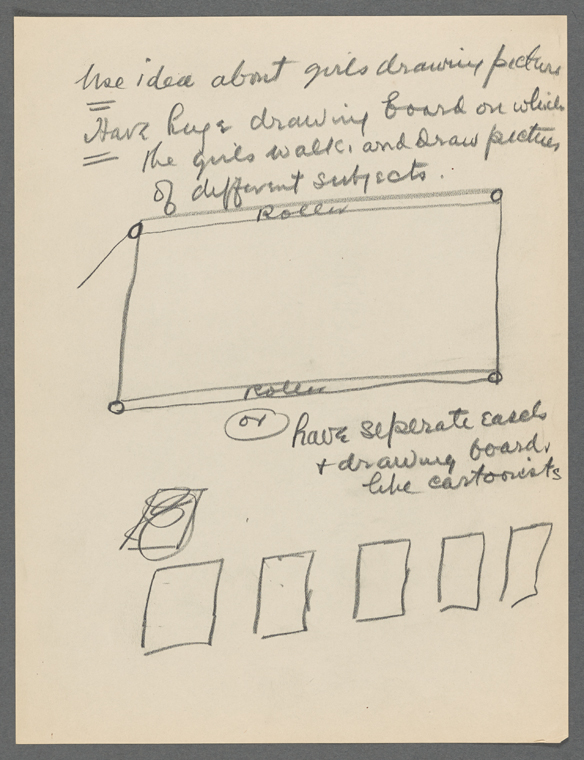 Use idea about girls drawing picture
Have huge drawing board on which
the girls walk, and draw pictures
of different subjects.
Roller
Roller
or
have seperate easels
+ drawing board,
like cartoonists